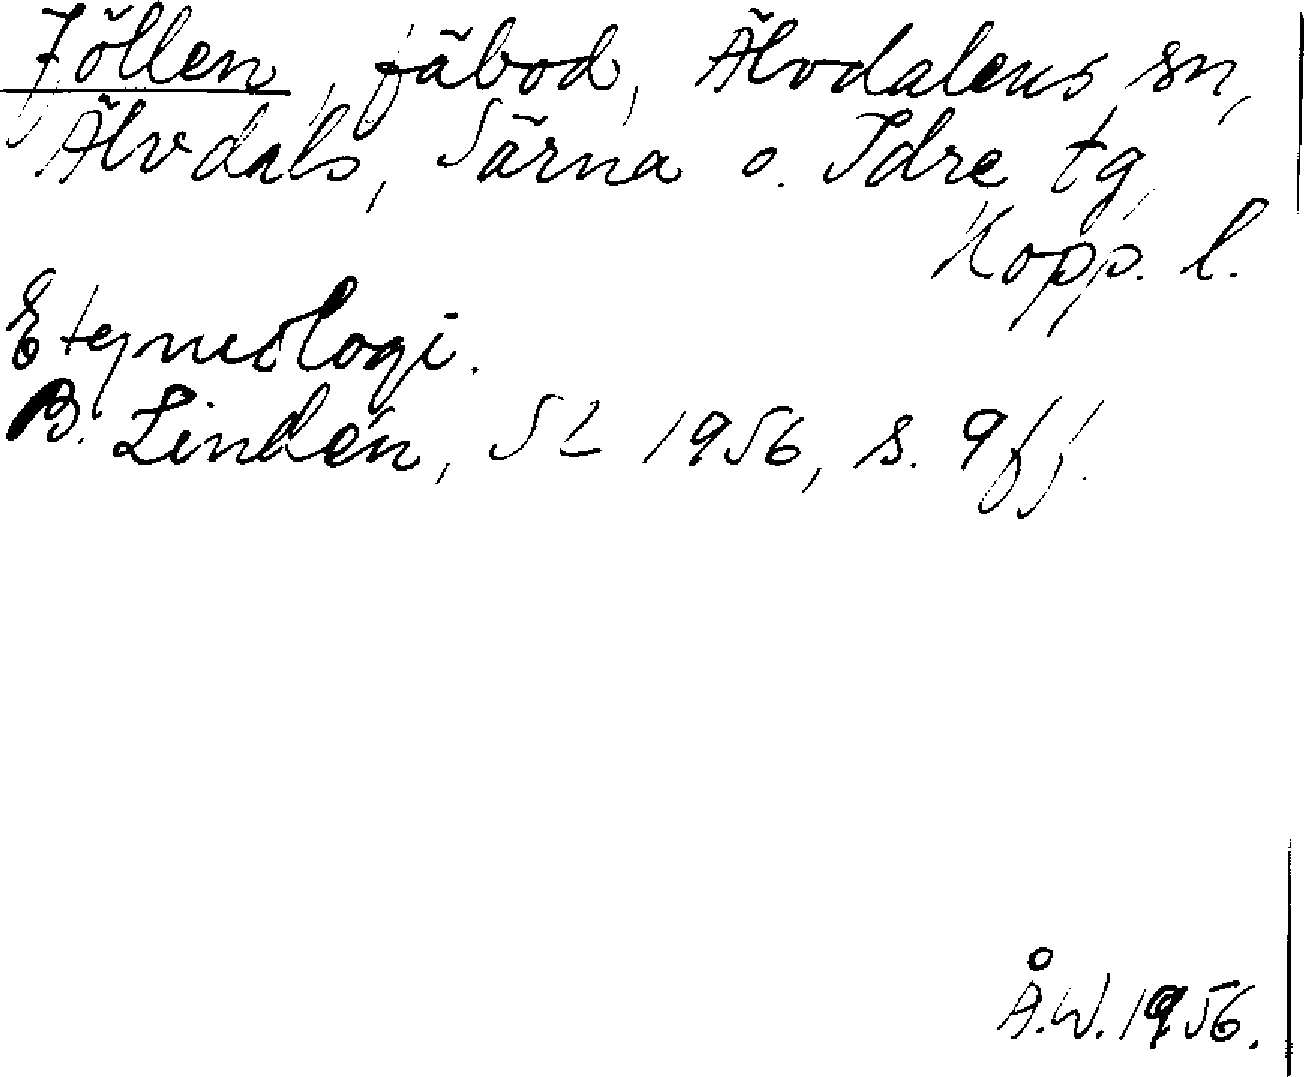 Jöllen, fäbod, Älvdalens sn,
Älvdals, Särna o. Idre tg,
Kopp. l.
Etymologi.
B. Lindén, SL 1956, s. 9 ff.
Å.W. 1956.